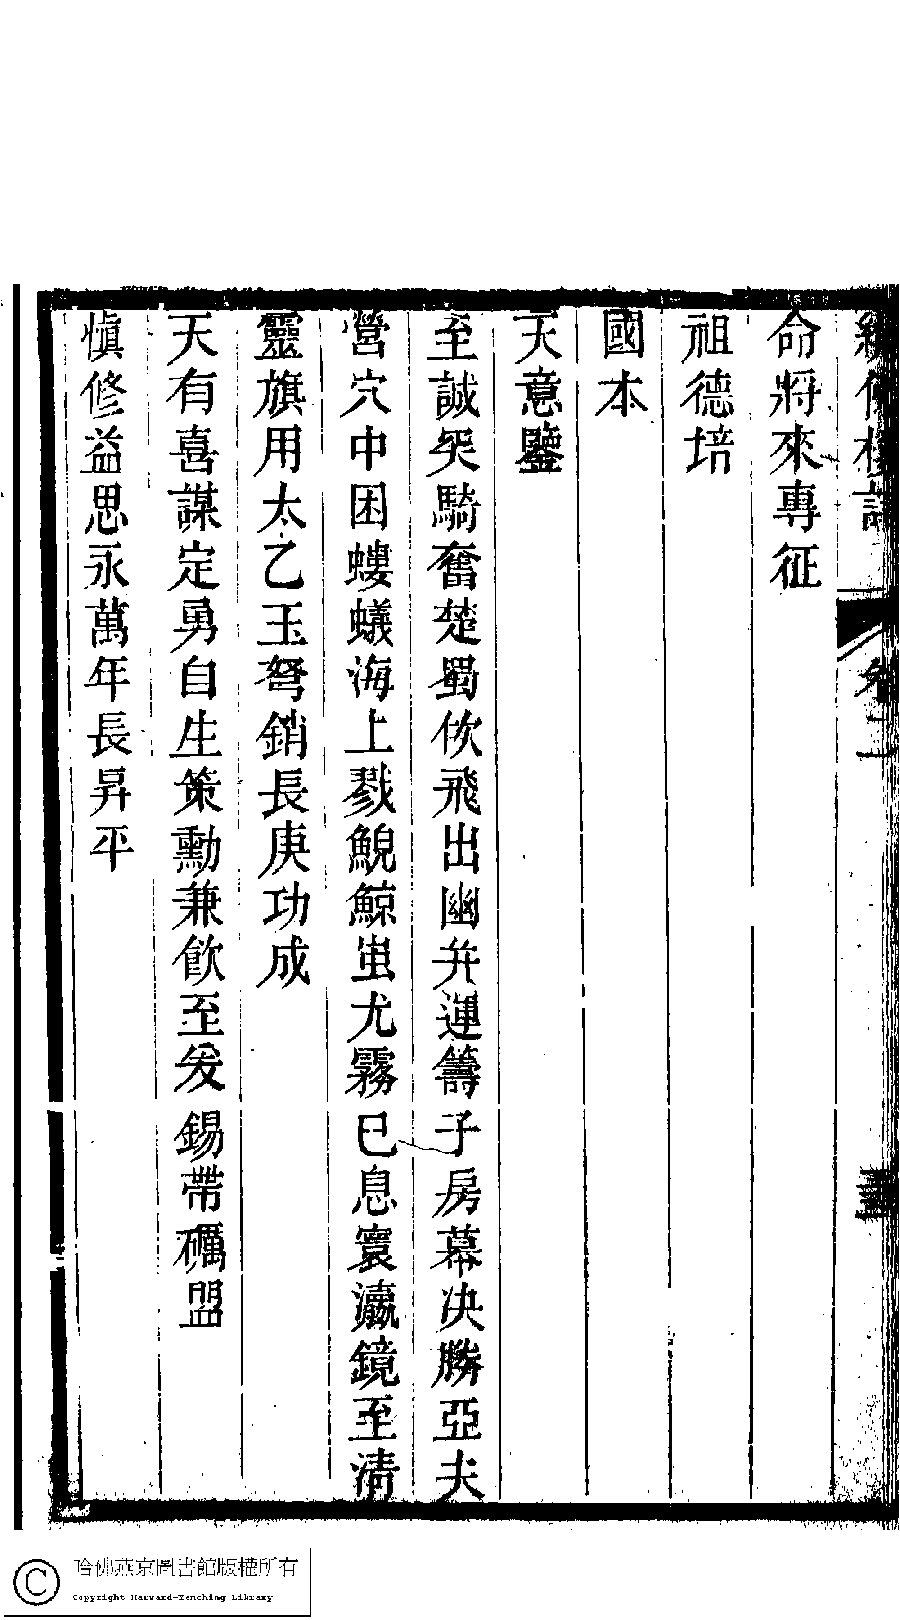 卷二
命將來專征
祖德培
國本
天意鑒
至誠突騎奮楚蜀佽飛出幽幷運籌子房幕決勝亞夫
營穴中困螻蟻海上戮鯢鯨蚩尤霧已息寰瀛鏡至清
靈旗用太乙玉弩銷長庚功成
天有喜謀定勇自生策勳兼飮至爰錫帶礪盟
慎修益思永萬年長昇平
哈佛燕京圖書館版權所有
Copyright Harvard-Yenching Library